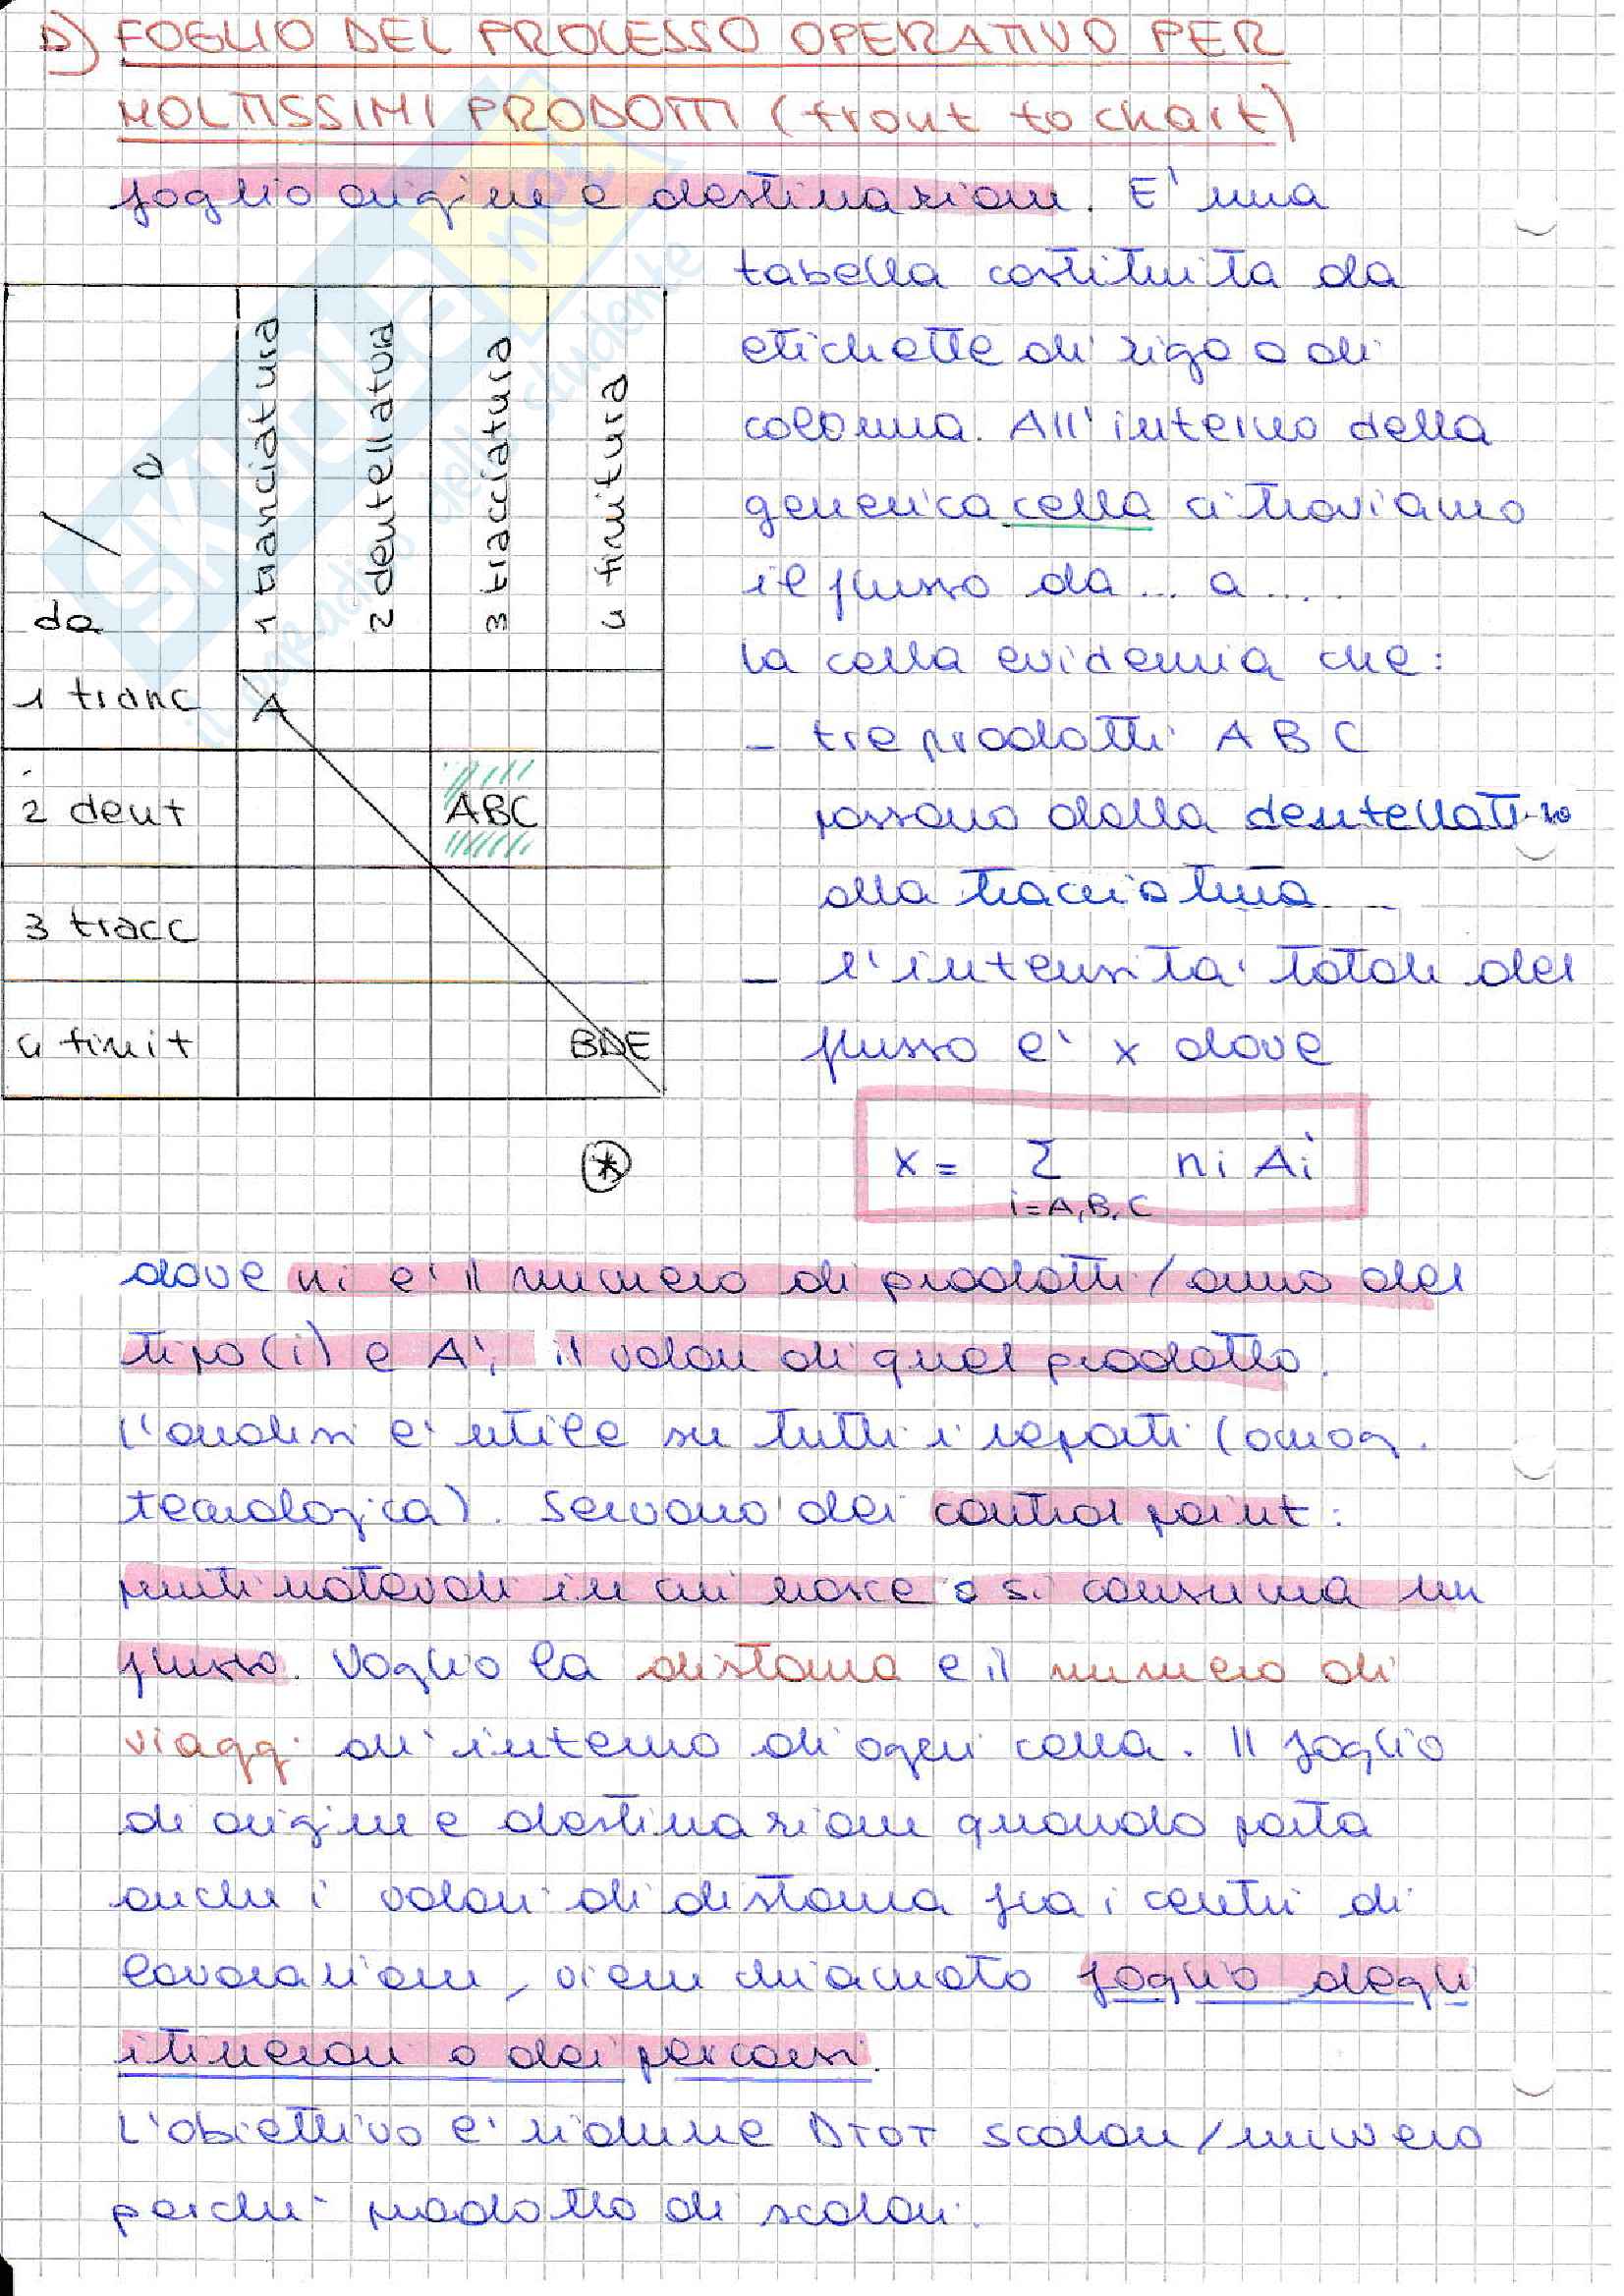 D) FOGLIO DEL PROCESSO OPERATIVO PER
MOLTISSIMI PRODOTTI (frout to chart)
foglio origine e destinazione. E' una
tabella costituita da
etichette di riga o di
colonna. All'interno della
generica cella ci troviamo
il flusso da... a....
la cella evidenzia che:
- tre prodotti A B C
passano dalla dentellatura
alla tracciatura
- l'intensita' totale del
flusso e' x dove
da / a
1 tranciatura
2 dentellatura
3 tracciatura
4 finitura
1 tranc A
2 dent ABC
3 tracc
4 finit BDE
*
x = Σ ni Ai
i=A,B,C
dove ni e' il numero di prodotti/anno del
tipo (i) e Ai il valore di quel prodotto.
L'analisi e' utile su tutti i reparti (omog.
tecnologica). Servono dei control point:
punti notevoli in cui nasce o si consuma un
flusso. Voglio la distanza e il numero di
viaggi all'interno di ogni cella. Il foglio
di origine e destinazione quando porta
anche i valori di distanza fra i centri di
lavorazione, viene chiamato foglio degli
itinerari o dei percorsi.
L'obiettivo e' ridurre DTOT scalare/numero
perche' prodotto di scalari.
SKUOLA.net
il paradiso dello studente